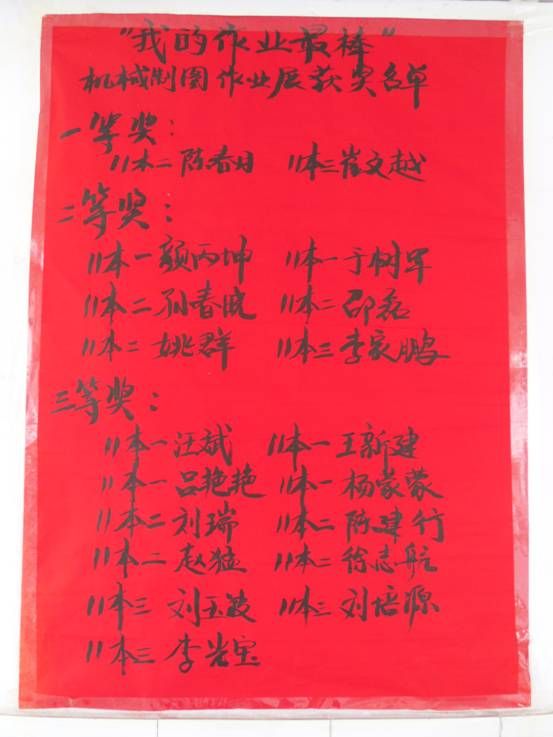 "我的作业最棒"
机械制图作业展获奖名单
一等奖:
11本二 陈春日 11本三 崔文越
二等奖:
11本一 颜丙坤 11本一 于树军
11本二 孙春晓 11本二 邵磊
11本二 姚群 11本三 李家鹏
三等奖:
11本一 汪斌 11本一 王新建
11本一 吕艳艳 11本一 杨家蒙
11本二 刘瑞 11本二 陈建行
11本二 赵猛 11本二 徐志航
11本三 刘玉波 11本三 刘培源
11本三 李岩宝